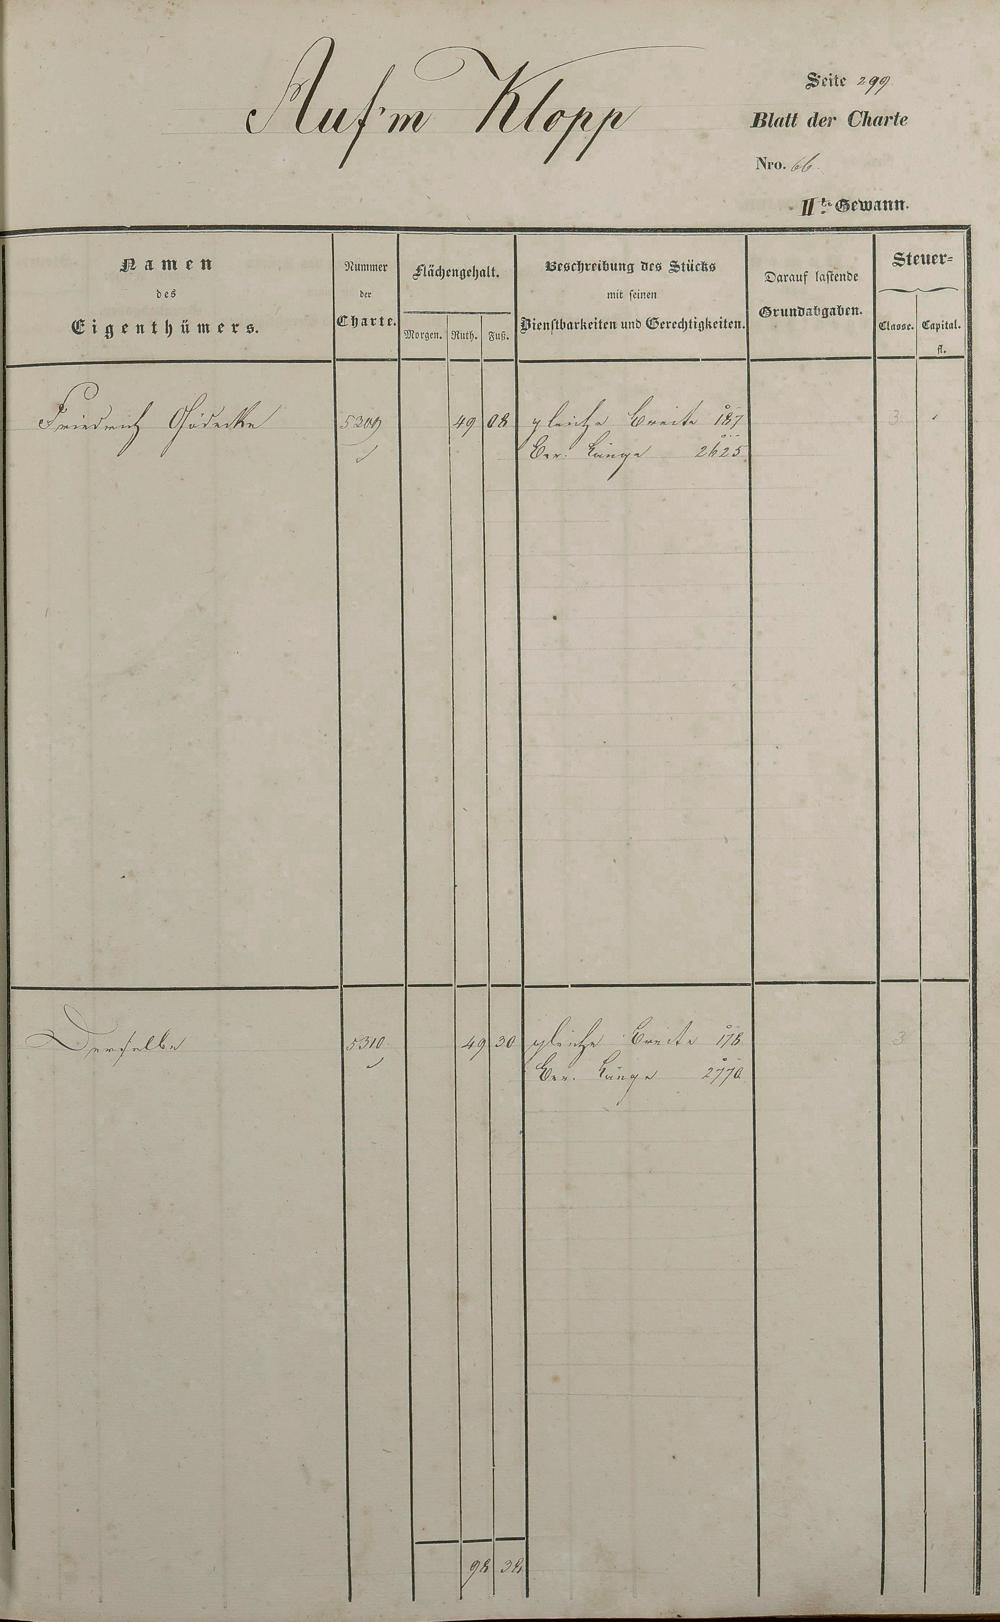 Auf'm Klopp
Seite 299
Blatt der Charte
Nro. 66.
IIte Gewann.
Namen des Eigenthümers.
Nummer der Charte.
Flächengehalt.
Morgen. Ruth. Fuß.
Beschreibung des Stücks
mit seinen
Dienstbarkeiten und Gerechtigkeiten.
Darauf lastende
Grundabgaben.
Steuer-
Classe. Capital.
fl.
Friedrich Gödecke 5309 49 08 gleiche Breite 187 3
Ber. Länge 2625
Derselbe 5310 49 30 gleiche Breite 178 3
Ber. Länge 2770
98 38